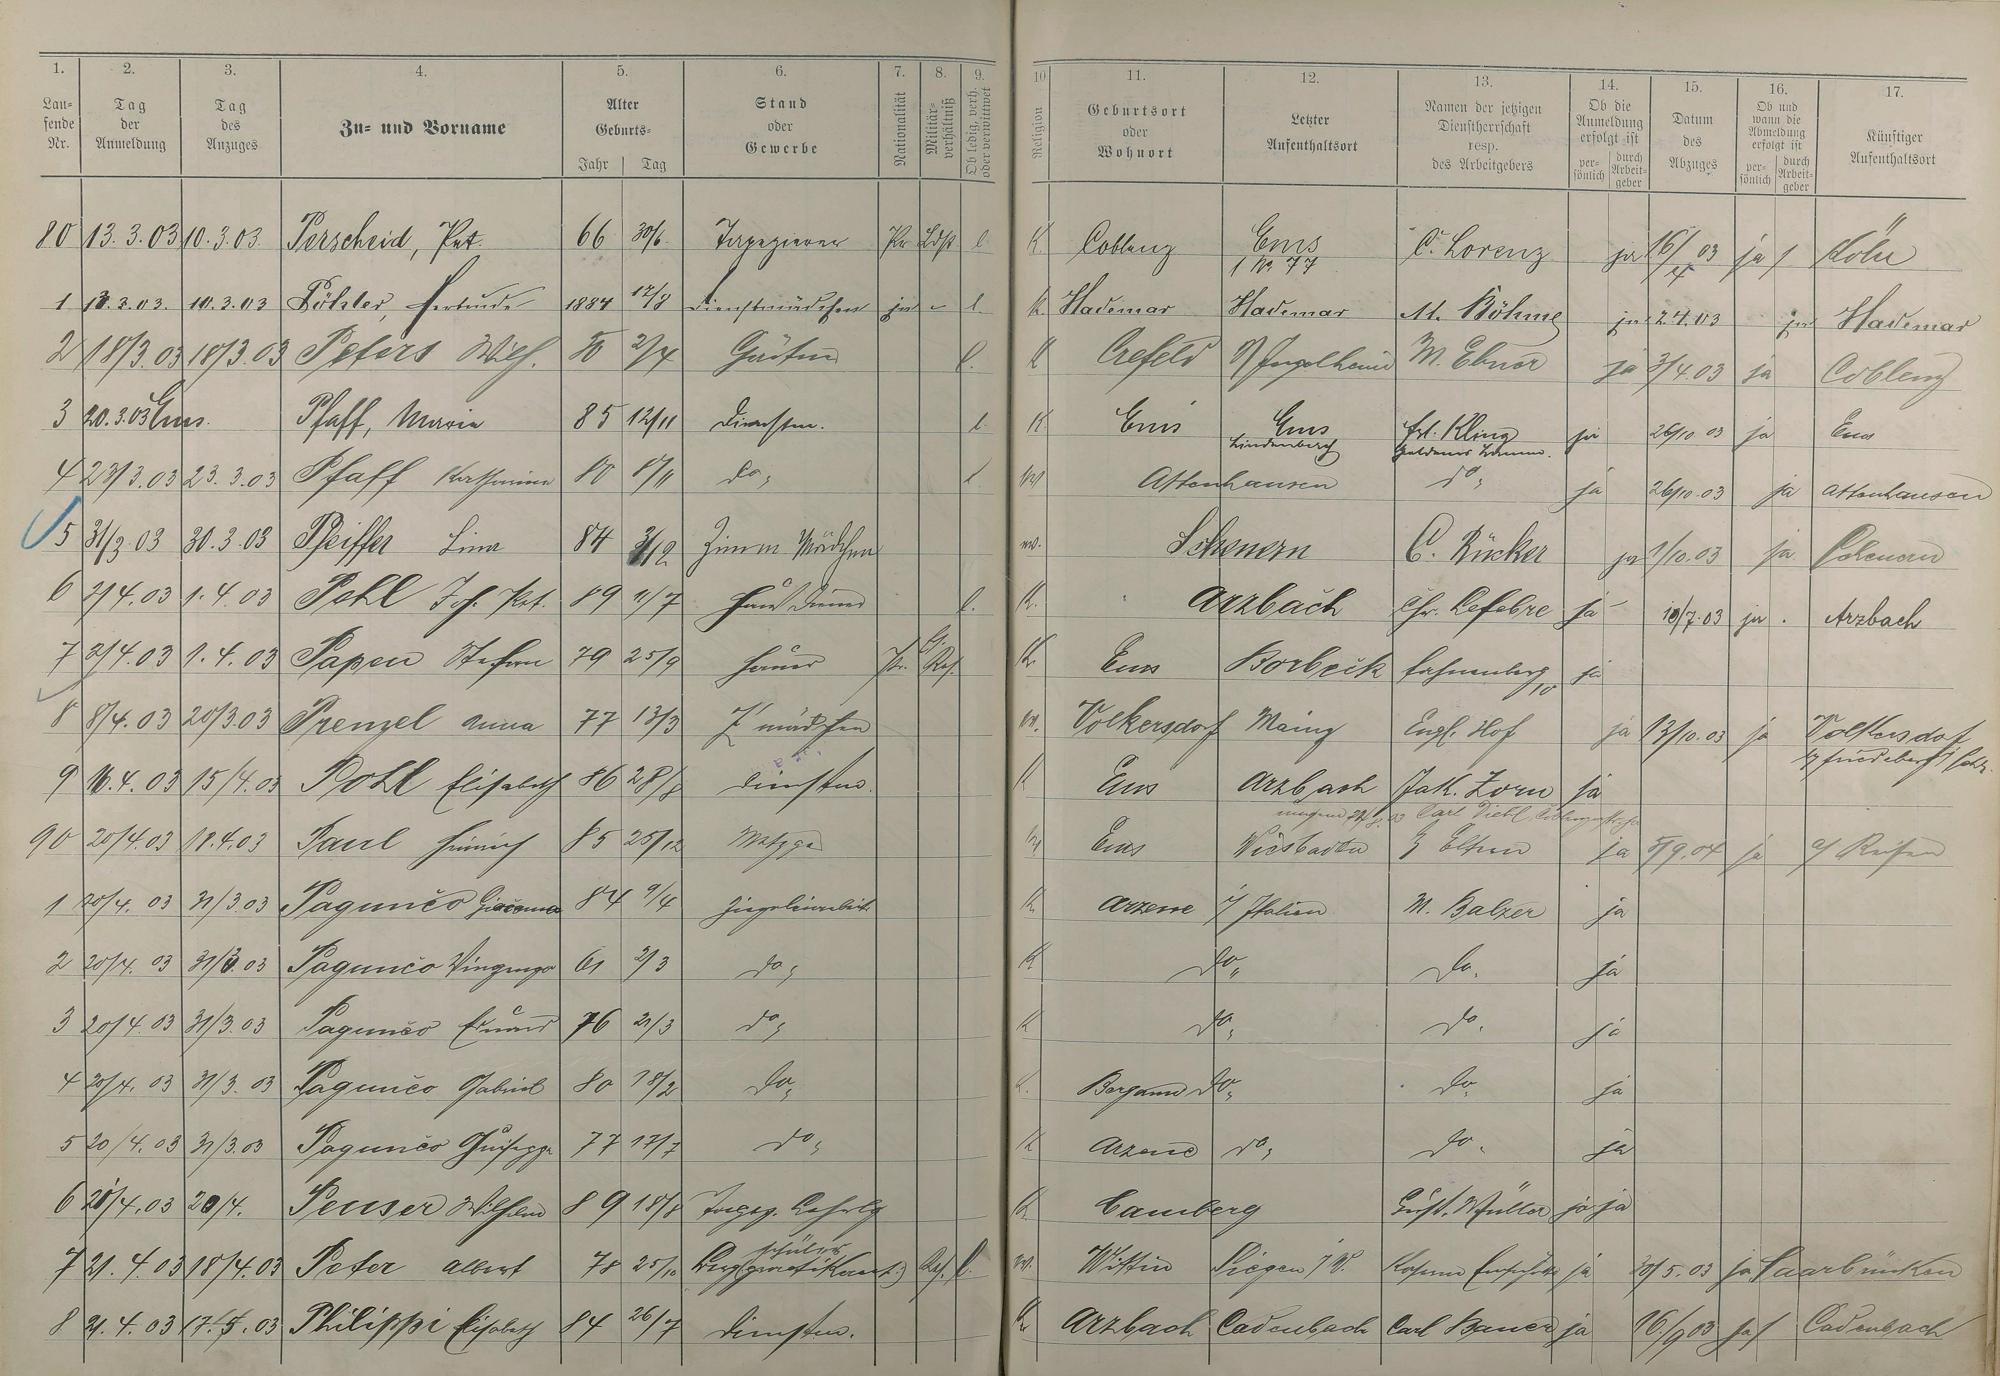 1. 2. 3. 4. 5. 6. 7. 8. 9. 10 11. 12. 13. 14. 15. 16. 17.
Lau-
fende
Nr.
Tag
der
Anmeldung
Tag
des
Anzuges
Zu- und Vorname
Alter
Geburts-
Jahr Tag
Stand
oder
Gewerbe
Nationalität
Militär-
verhältniß
Ob ledig, verh.
oder verwittwet
Religion
Geburtsort
oder
Wohnort
Letzter
Aufenthaltsort
Namen der jetzigen
Dienstherrschaft
resp.
des Arbeitgebers
Ob die
Anmeldung
erfolgt ist
per-
sönlich
durch
Arbeit-
geber
Datum
des
Abzuges
Ob und
wann die
Abmeldung
erfolgt ist
per-
sönlich
durch
Arbeit-
geber
Künftiger
Aufenthaltsort
80 13.3.03 10.3.03. Perscheid, Pet. 66 30/6. Tapezierer Pr Ldst l K. Coblenz Ems C. Lorenz ja 16/4 03 ja Köln
1 No 77
1 10.3.03 Gertrude 1884 12/8 Dienstmädchen l. K. Hadamar Hadamar M. Böhme ja 2.4.03 ja Hadamar
2 18/3.03 18/3.03 Peters Wilh. 2/4 Gärtner l. K Crefeld Ingelheim M. Ebner ja 3/4.03 ja Coblenz
3 20.3.03 Ems. Pfaff, Maria 85 12/11 Dienstm. l. K Ems Ems Frl. Kling ja 26/10 03 ja Ems
Lindenbach
4 23/3.03 23.3.03 Pfaff Katharina 80 do, l Attenhausen do, ja 26/10.03 ja Attenhausen
5 31/3.03 30.3.03 Pfeiffer Lina 84 Zimm Mädchen Scheuern C. Rücker ja 1/10.03 ja Scheuern
6 2/4.03 1.4.03 Pehl Joh. Pet. 89 11/7 Haus Diener l. K. Arzbach Chr. Lefebre ja 10/7.03 ja. Arzbach
7 2/4.03 1.4.03 Papen Stefan 79 25/9 Pr. Res. K. Ems Borbeck Fahnenberg 10 ja
8 8/4.03 20/3.03 Prenzel Anna 77 13/3 Z mädchen Volkersdorf Mainz Engl. Hof ja 13/10.03 ja Volkersdorf
9 16.4.03 15/4.03 Pohl Elisabeth 86 28/8 Dienstm. K Ems Arzbach Jak. Zorn ja
Carl Diehl
90 20/4.03 18.4.03 Paul Heinrich 85 25/12 Metzger Ems Wiesbaden Eltern ja 5/9.04 ja a/ Reisen
1 20/4.03 31/3.03 Pagunčo Giacomo 84 9/4 Ziegeleiarbeit. K. Arzene i/ Italien M. Balzer ja
2 20/4.03 31/3.03 Pagunčo 61 2/3 do, K do, do. ja
3 20/4.03 31/3.03 Pagunčo Eduard 76 21/3 do, K do, do. ja
4 20/4.03 31/3.03 Pagunčo Gabriel 80 18/2 do, K. Bergamo do, do, ja
5 20/4.03 31/3.03 Pagunčo Giuseppe 77 17/7 do, K Arzene do, do. ja
6 20/4.03 20/4. Peuser Wilhelm 89 18/8 Tapez. Lehrlg K. Camberg Gust. Müller ja ja
7 21.4.03 18/4.03 Peter Albert 78 25/10 Bergpraktikant Res. l. Witten Siegen ja 30/5.03 ja Saarbrücken
schüler
8 21.4.03 Philippi Elisabeth 84 26/7 Dienstm. K. Arzbach Cadenbach Carl Bauer ja 16/9 03 ja Cadenbach